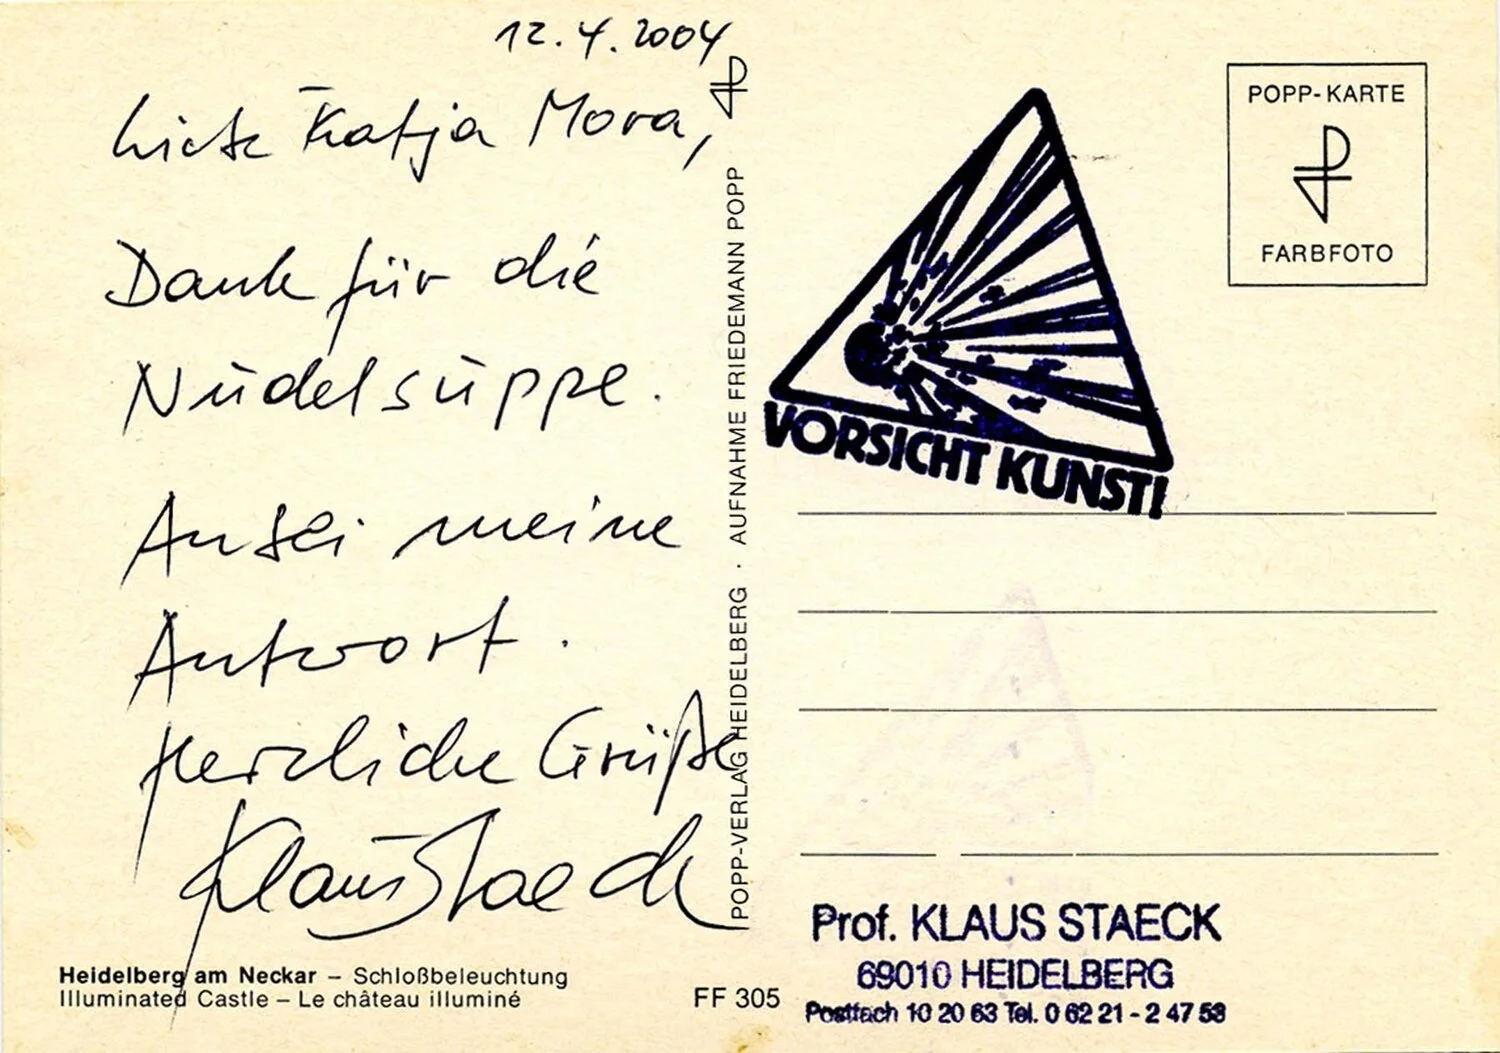 12.4.2004
Liebe Katja Mora,
Dank für die
Nudelsuppe.
Anbei meine
Antwort.
Herzliche Grüße
Klaus Staeck
Heidelberg am Neckar – Schloßbeleuchtung
Illuminated Castle – Le château illuminé
FF 305
POPP-VERLAG HEIDELBERG · AUFNAHME FRIEDEMANN POPP
VORSICHT KUNST!
POPP-KARTE
FARBFOTO
Prof. KLAUS STAECK
69010 HEIDELBERG
Postfach 10 20 63 Tel. 0 62 21 - 2 47 53